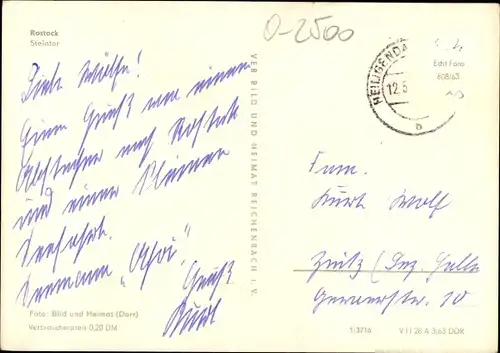 Rostock
Steintor
O-2500
Liebe Wölfe!
Einen Gruß von einem
Abstecher nach Rostock
und einer kleinen
Seefahrt.
Seemann „Ahoi“!
Gruß
Foto: Bild und Heimat (Darr)
Verbraucherpreis 0,20 DM
VEB BILD UND HEIMAT REICHENBACH i. V.
HEILIGENDA
12.
b
Echt Foto
608/63
Fam.
Kurt Wolf
Zeitz (Bez. Halle
10
1/3716
V 11 28 A 3/63 DDR